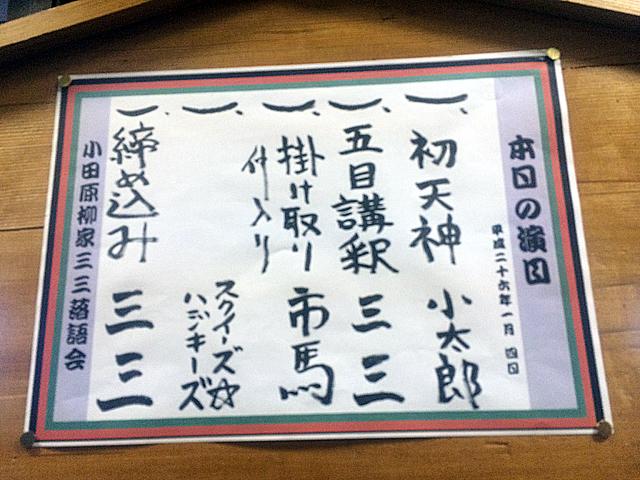 本日の演目
平成二十六年一月 四日
一、初天神 小太郎
一、五目講釈 三三
一、掛け取り 市馬
仲入り
一、スクイーズ☆
ハジキーズ
一、締め込み 三三
小田原柳家三三落語会